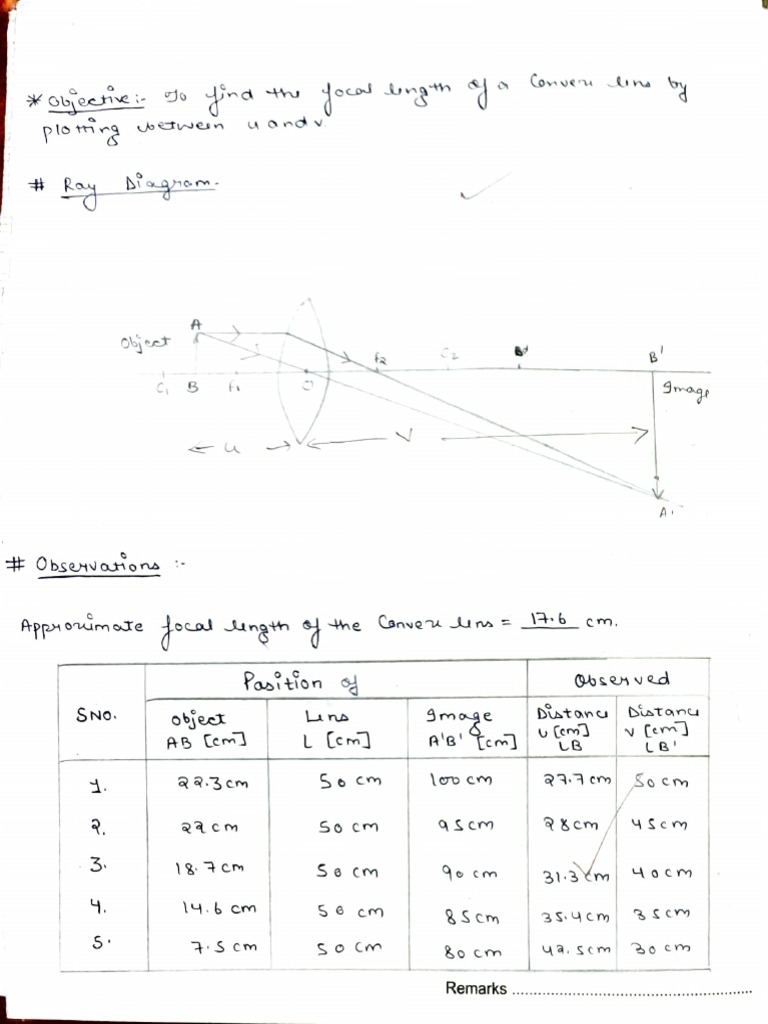 * Objective :- To find the focal length of a Convex lens by
plotting between u and v.
# Ray Diagram.
A
Object
F2
C2
B'
C1
B
F1
O
Image
u
V
A'
# Observations :-
Approximate focal length of the Convex lens = 17.6 cm.
SNO.
Position of
Observed
Object
AB [cm]
Lens
L [cm]
Image
A'B' [cm]
Distance
u [cm]
LB
Distance
v [cm]
LB'
1. 22.3cm 50 cm 100 cm 27.7 cm 50 cm
2. 22 cm 50 cm 95 cm 28 cm 45 cm
3. 18.7 cm 50 cm 90 cm 31.3 cm 40 cm
4. 14.6 cm 50 cm 85 cm 35.4 cm 35 cm
5. 7.5 cm 50 cm 80 cm 42.5 cm 30 cm
Remarks